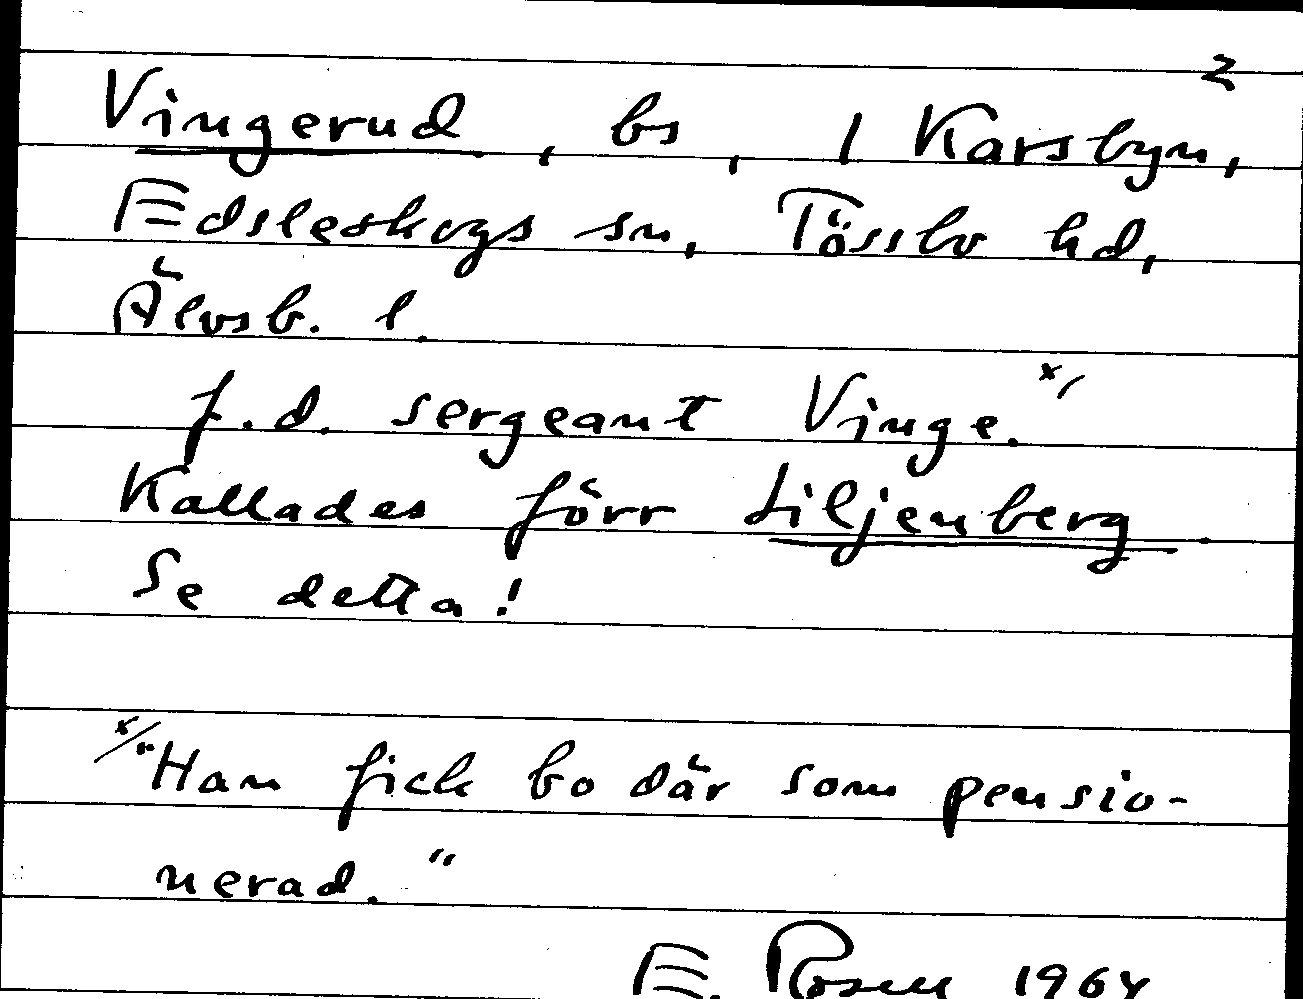 2
Vingerud, bs, 1 Karsbyn,
Edsleskogs sn, Tössbo hd,
Älvsb. l.
f.d. sergeant Vinge. x/
Kallades förr Liljenberg.
Se detta!
x/ "Han fick bo där som pensio-
nerad."
E. Rosell 1964